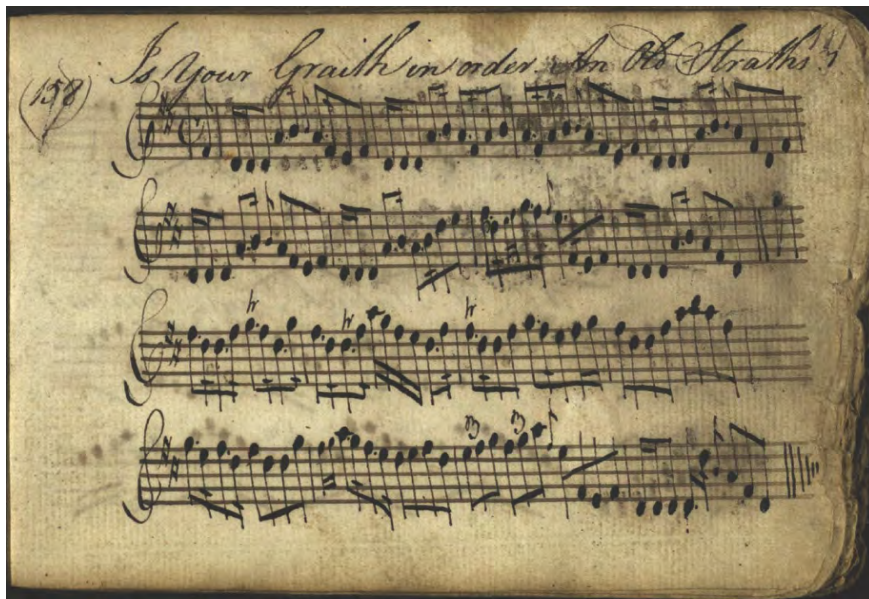 (158) Is Your Graith in order An Old Straths
tr
tr
tr
3
3